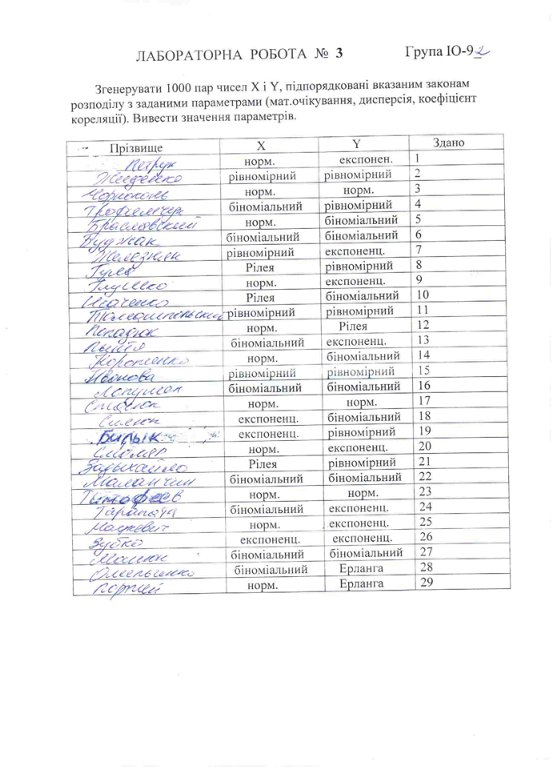 ЛАБОРАТОРНА РОБОТА № 3 Група ІО-92
Згенерувати 1000 пар чисел X і Y, підпорядковані вказаним законам
розподілу з заданими параметрами (мат.очікування, дисперсія, коефіцієнт
кореляції). Вивести значення параметрів.
Прізвище X Y Здано
Петрук норм. експонен. 1
рівномірний рівномірний 2
Чорноконь норм. норм. 3
Трофимчук біноміальний рівномірний 4
Брасловський норм. біноміальний 5
Буджак біноміальний біноміальний 6
Железняк рівномірний експоненц. 7
Гуля Рілея рівномірний 8
Глушко норм. експоненц. 9
Ісаченко Рілея біноміальний 10
рівномірний рівномірний 11
норм. Рілея 12
біноміальний експоненц. 13
Коротенко норм. біноміальний 14
Иванова рівномірний рівномірний 15
біноміальний біноміальний 16
норм. норм. 17
експоненц. біноміальний 18
Билык експоненц. рівномірний 19
норм. експоненц. 20
Рілея рівномірний 21
Маланчин біноміальний біноміальний 22
Тимофеев норм. норм. 23
біноміальний експоненц. 24
Мацкевич норм. експоненц. 25
Зубко експоненц. експоненц. 26
біноміальний біноміальний 27
Омельченко біноміальний Ерланга 28
Коржий норм. Ерланга 29